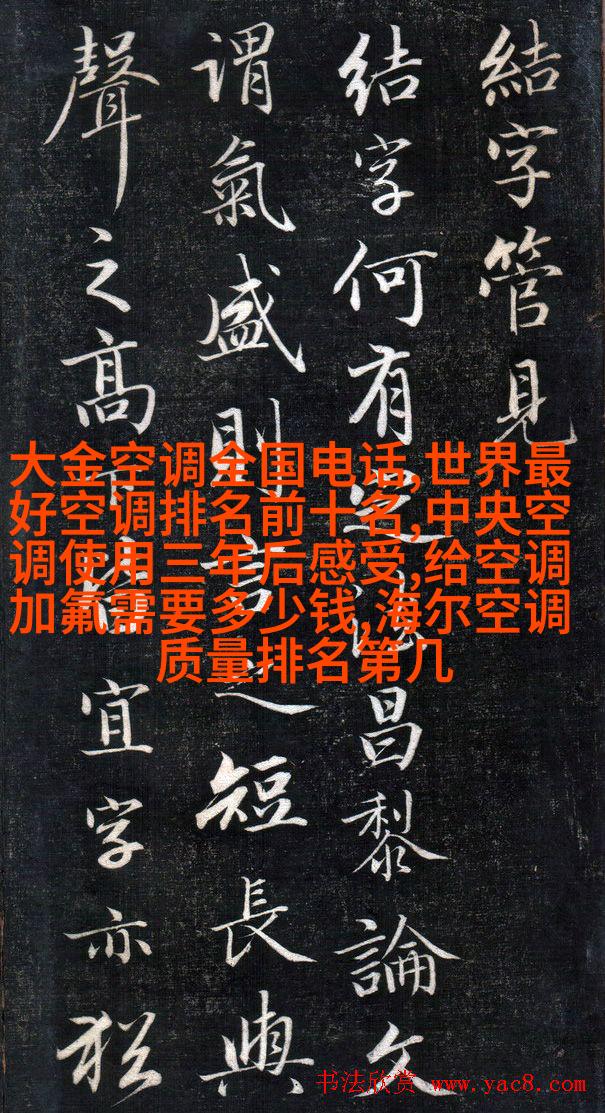 結字管見
结字何有法昌黎論文
謂氣盛則言之短長與
聲之髙下宜字亦猶
大金空调全国电话,世界最
好空调排名前十名,中央空
调使用三年后感受,给空调
加氟需要多少钱,海尔空调
质量排名第几
书法欣赏 www.yac8.com